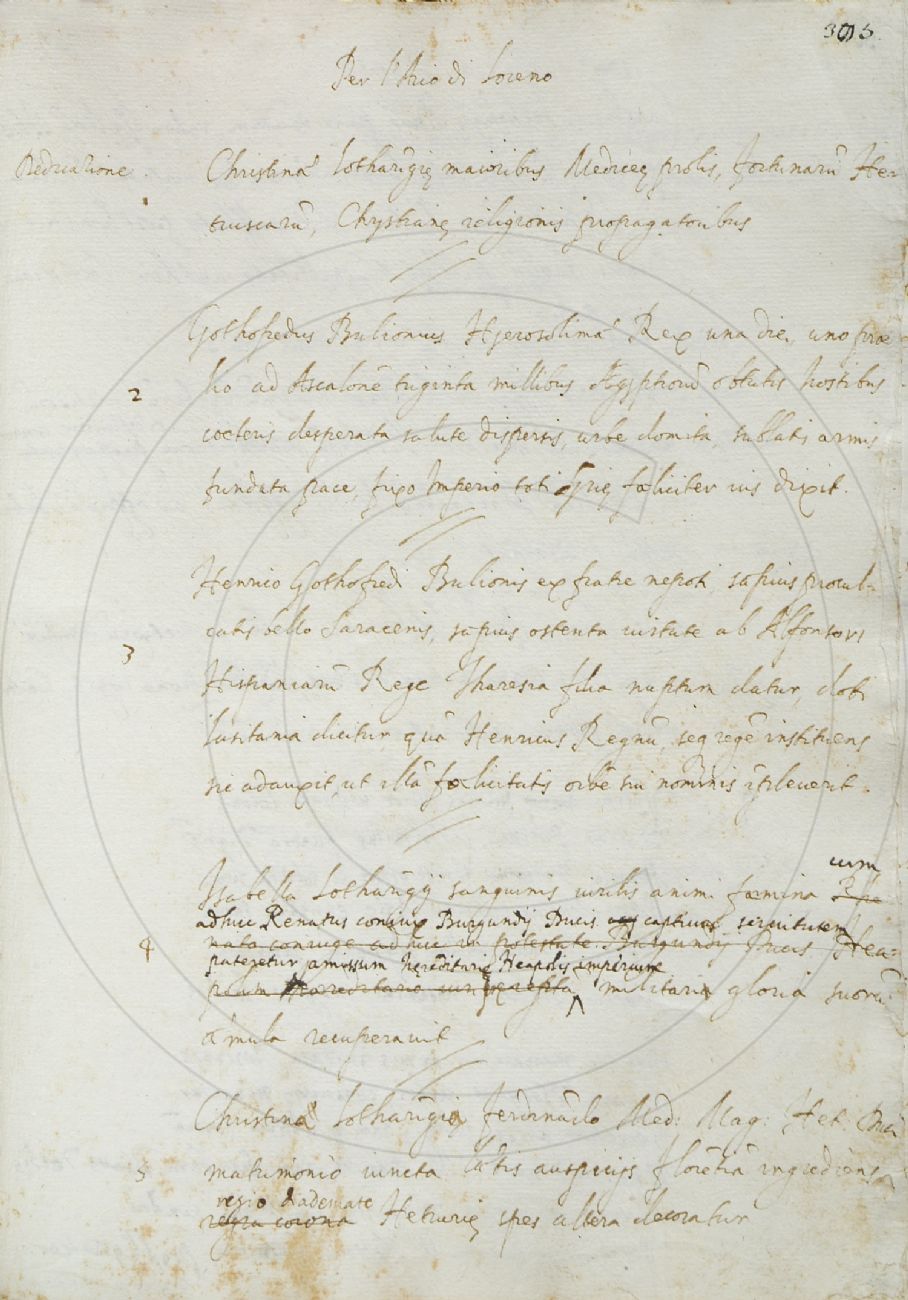 305
Per l'Arco di Loreno
Dedicatione.
Christinę Lotharīgię maioribus Mediceę prolis, fortunarū He-
truscarū, Chrystianę religionis propagatoribus
2
Gothofredus Bulionius Hyerosolimā Rex una die, uno præ
lio ad Ascalonē triginta millibus Ægyptiorū obtritis hostibus
cæteris desperata salute dispersis, urbe domita, sublatis armis
fundata pace, fixo Imperio toti Syrię fœliciter ius dixit.
3
Henrico Gothofredi Bulionis ex fratre nepoti, sæpius procul-
catis bello Saracenis, sæpius ostenta virtute ab Alfonso VI
Hispaniarū Rege Tharesia filia nuptum datur, doti
Lusitania dicitur, quā Henricus Regnū, seq regē instituens
sic adauxit, ut illā fœlicitatis orbē sui nominis īpleverit.
4
Isabella Lotharīgij sanguinis virilis animi fæmina Re cum
adhuc Renatus coniux Burgundij Ducis captivus servitutem
nato coniuge adhuc in potestate Burgundij Ducis Nea-
pateretur amissum hęreditariū Neapolis imperium
polim hæreditario iure quæsita militaris gloria suorū
æmula recuperavit
5
Christina Lotharīgia Ferdinādo Med: Mag: Het: Duci
matrimonio iuncta lætis auspicijs Florētiā ingrediens
regio diademate
regia corona Hetrurię spes altera decoratur